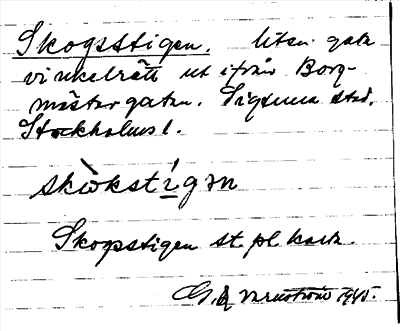 Skogsstigen. Liten gata
vinkelrätt ut ifrån Borg-
mästargatan. Sigtuna stad.
Stockholms l.
skòkstígən
Skogsstigen st. pl. kart.
1945.